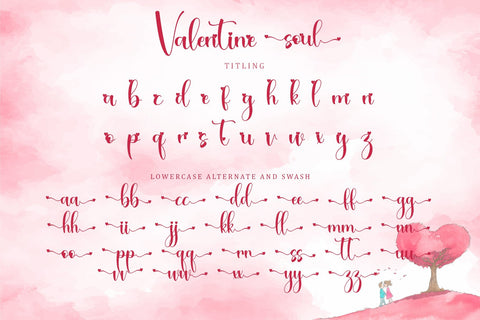 Valentine soul
TITLING
a b c d e f g h k l m n
o p q r s t u v w x y z
LOWERCASE ALTERNATE AND SWASH
aa bb cc dd ee ff gg
hh ii jj kk ll mm nn
oo pp qq rr ss tt uu
vv ww xx yy zz